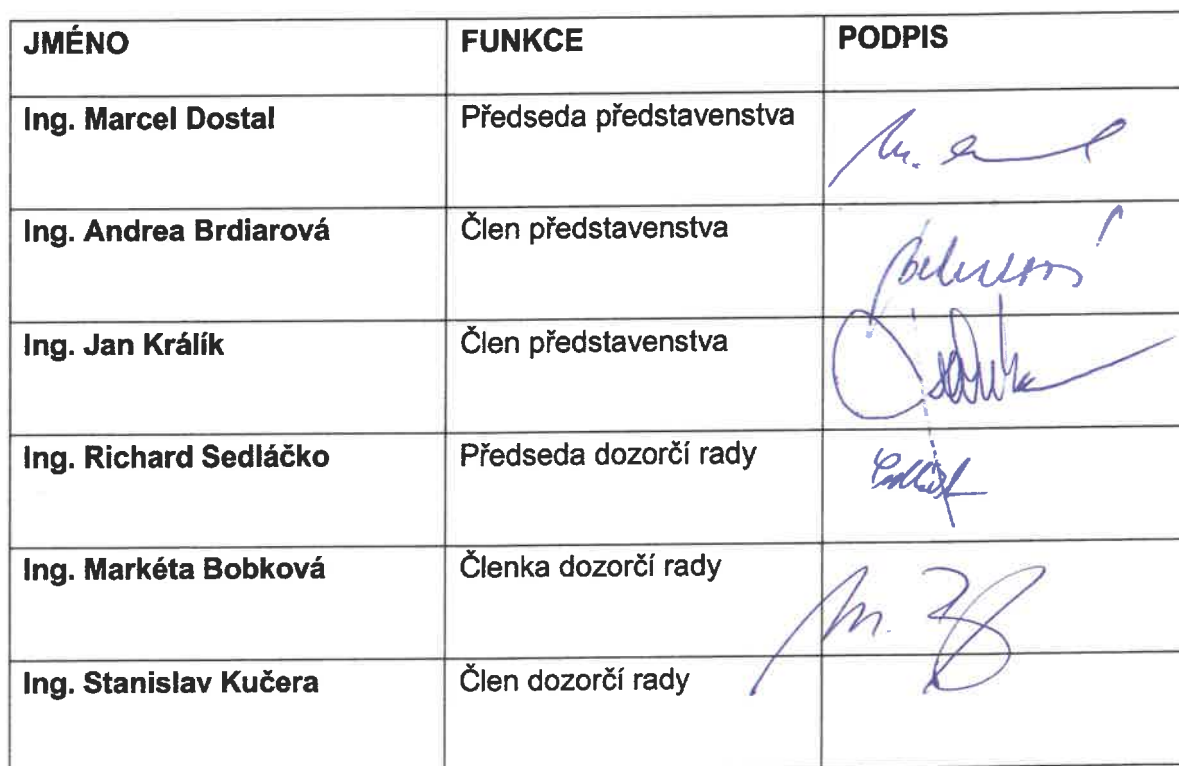 JMÉNO FUNKCE PODPIS
Ing. Marcel Dostal Předseda představenstva
Ing. Andrea Brdiarová Člen představenstva
Ing. Jan Králík Člen představenstva
Ing. Richard Sedláčko Předseda dozorčí rady
Ing. Markéta Bobková Členka dozorčí rady
Ing. Stanislav Kučera Člen dozorčí rady